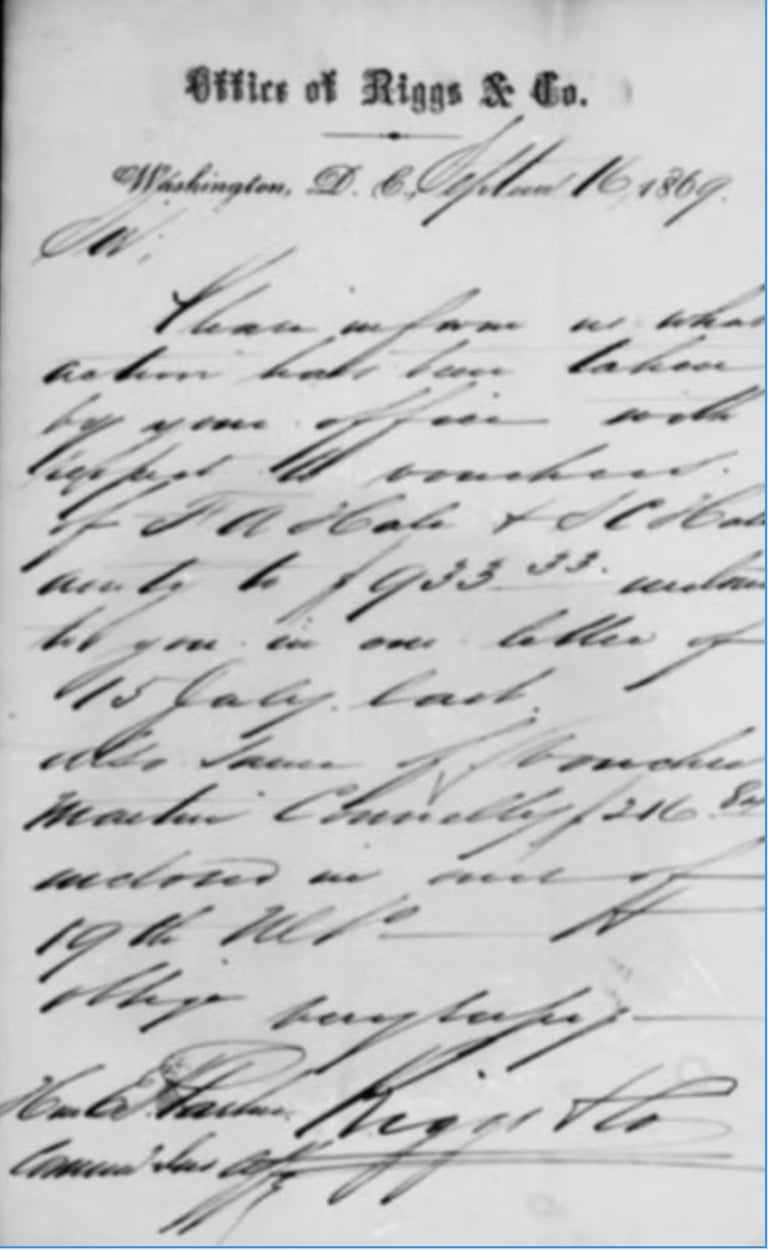 Office of Riggs & Co.
Washington, D. C., Septem 16, 1869.
Sir,
Please inform us what
action has been taken
by your office with
respect to vouchers
of F A Hale & S C Hale
amtg to $933 33. enclosed
to you in our letter of
15 July last.
also same of voucher
Martin Connelly $216.84
enclosed in ours of
19th Ulto &
oblige very respy
Hon E S Parker Riggs & Co
Comm Ind Aff